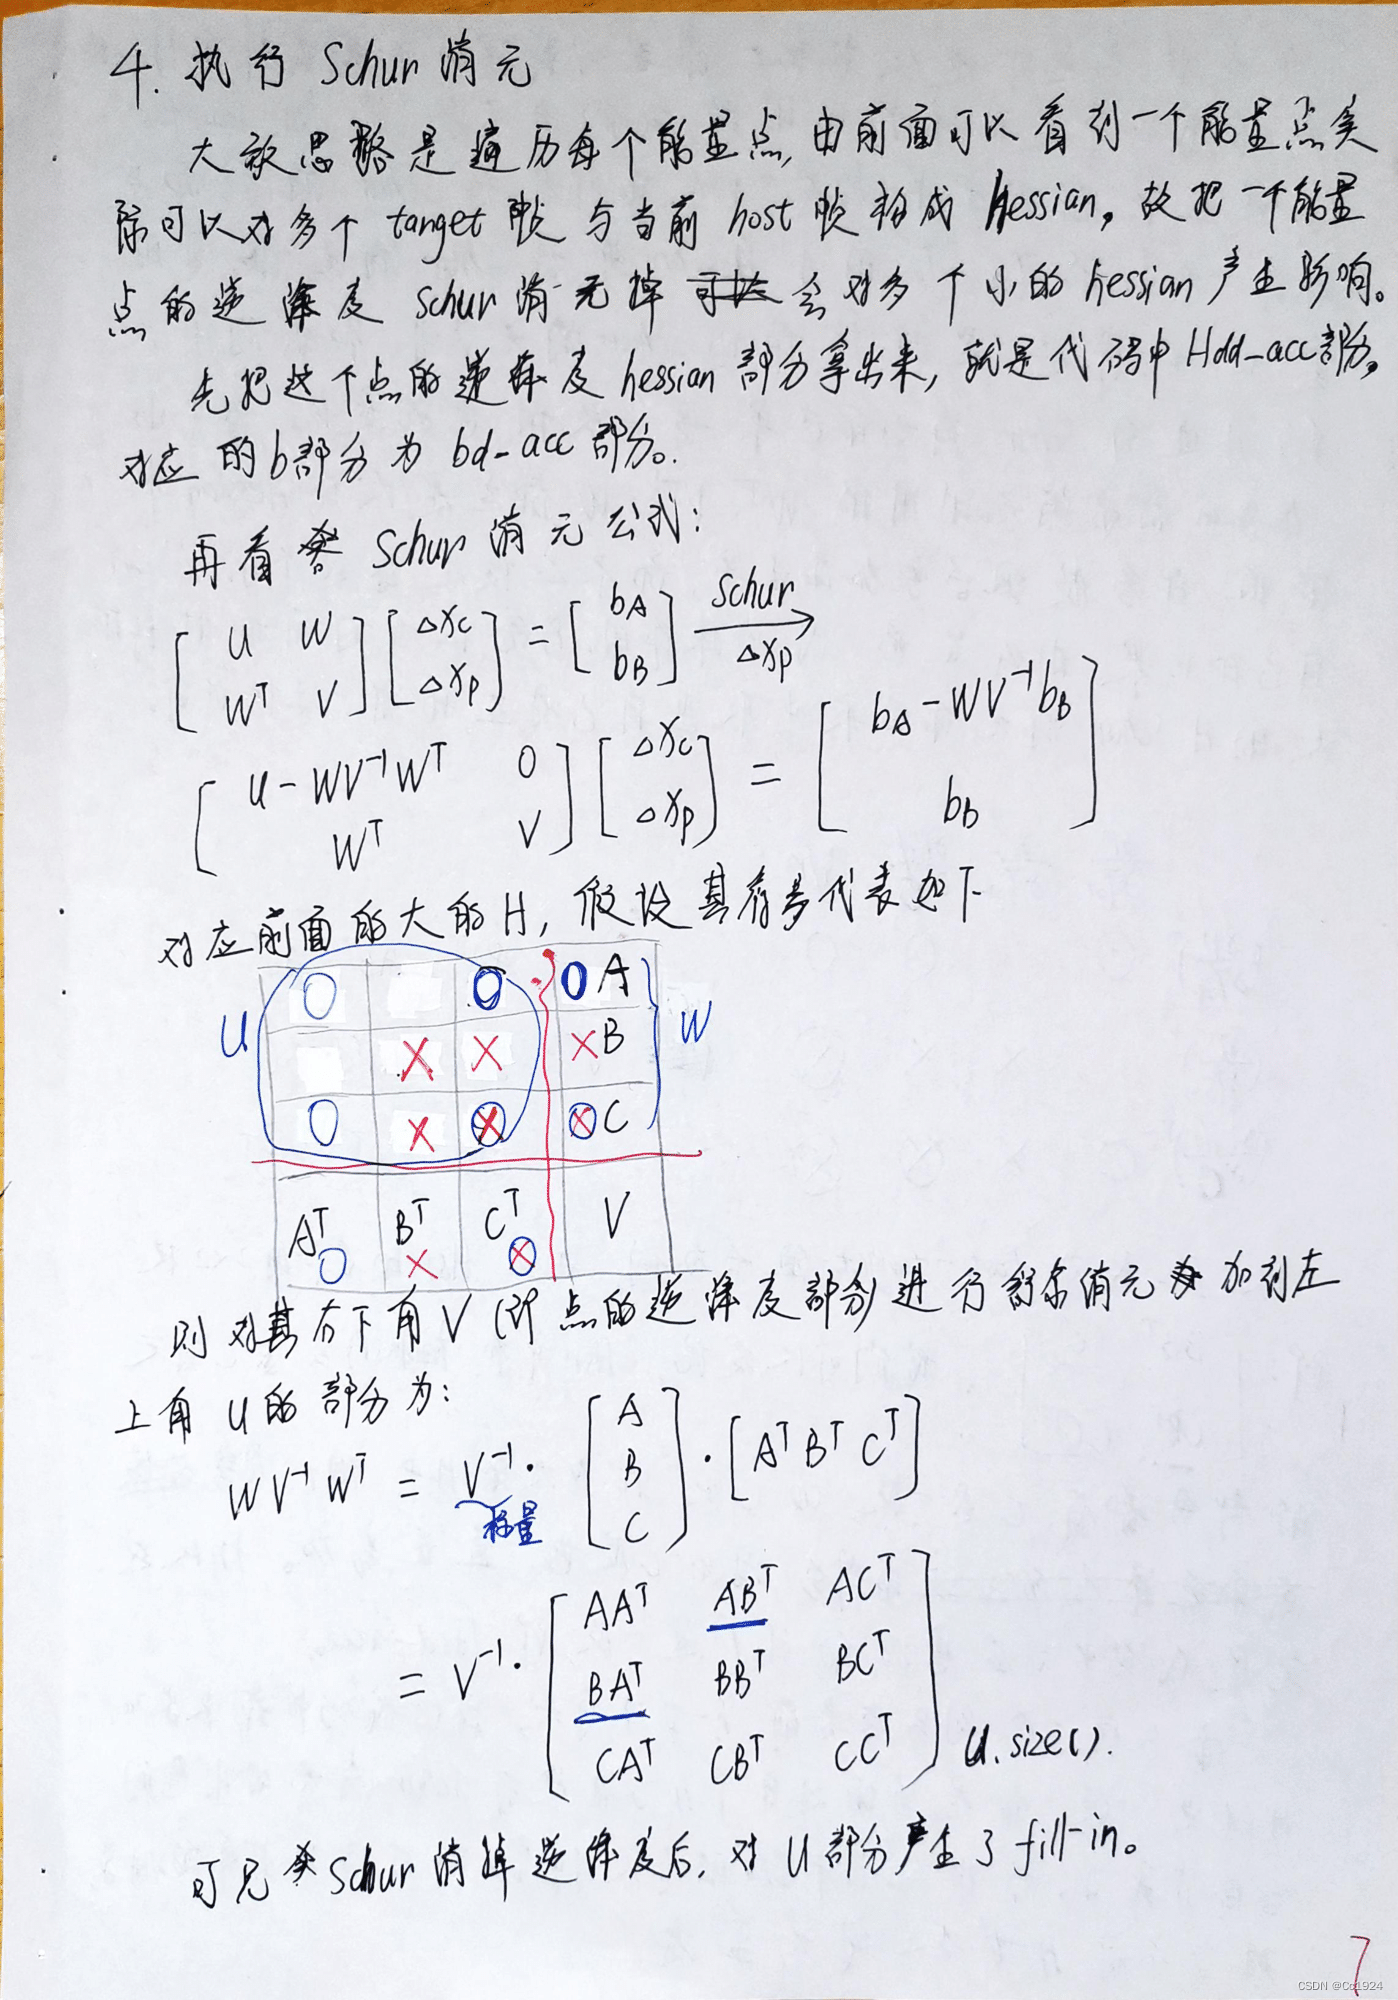 4. 执行 Schur 消元
大致思路是遍历每个能量点,由前面可以看到一个能量点实
际可以对多个 target 帧与当前 host 帧构成 hessian, 故把一个能量
点的逆深度 schur 消元掉 会对多个小的 hessian 产生影响。
先把这个点的逆深度 hessian 部分拿出来, 就是代码中 Hdd_acc部分,
对应的b部分为 bd_acc 部分。
再看 Schur 消元公式:
[ U W ; Wᵀ V ] [ Δxc ; Δxp ] = [ bA ; bB ] schur → Δxp
[ U - WV⁻¹Wᵀ 0 ; Wᵀ V ] [ Δxc ; Δxp ] = [ bA - WV⁻¹bB ; bB ]
对应前面的大的H, 假设其有 代表如下
O O O A
U × × × B W
O × × × C
Aᵀ Bᵀ Cᵀ V
O × ×
则对其右下角V (即点的逆深度部分) 进行舒尔消元 加到左
上角 U的部分为:
WV⁻¹Wᵀ = V⁻¹ · [ A ; B ; C ] · [ Aᵀ Bᵀ Cᵀ ]
标量
= V⁻¹ · [ AAᵀ ABᵀ ACᵀ ; BAᵀ BBᵀ BCᵀ ; CAᵀ CBᵀ CCᵀ ] U.size().
可见 Schur 消掉逆深度后, 对 U 部分产生了 fill-in。
7
CSDN @Cc1924